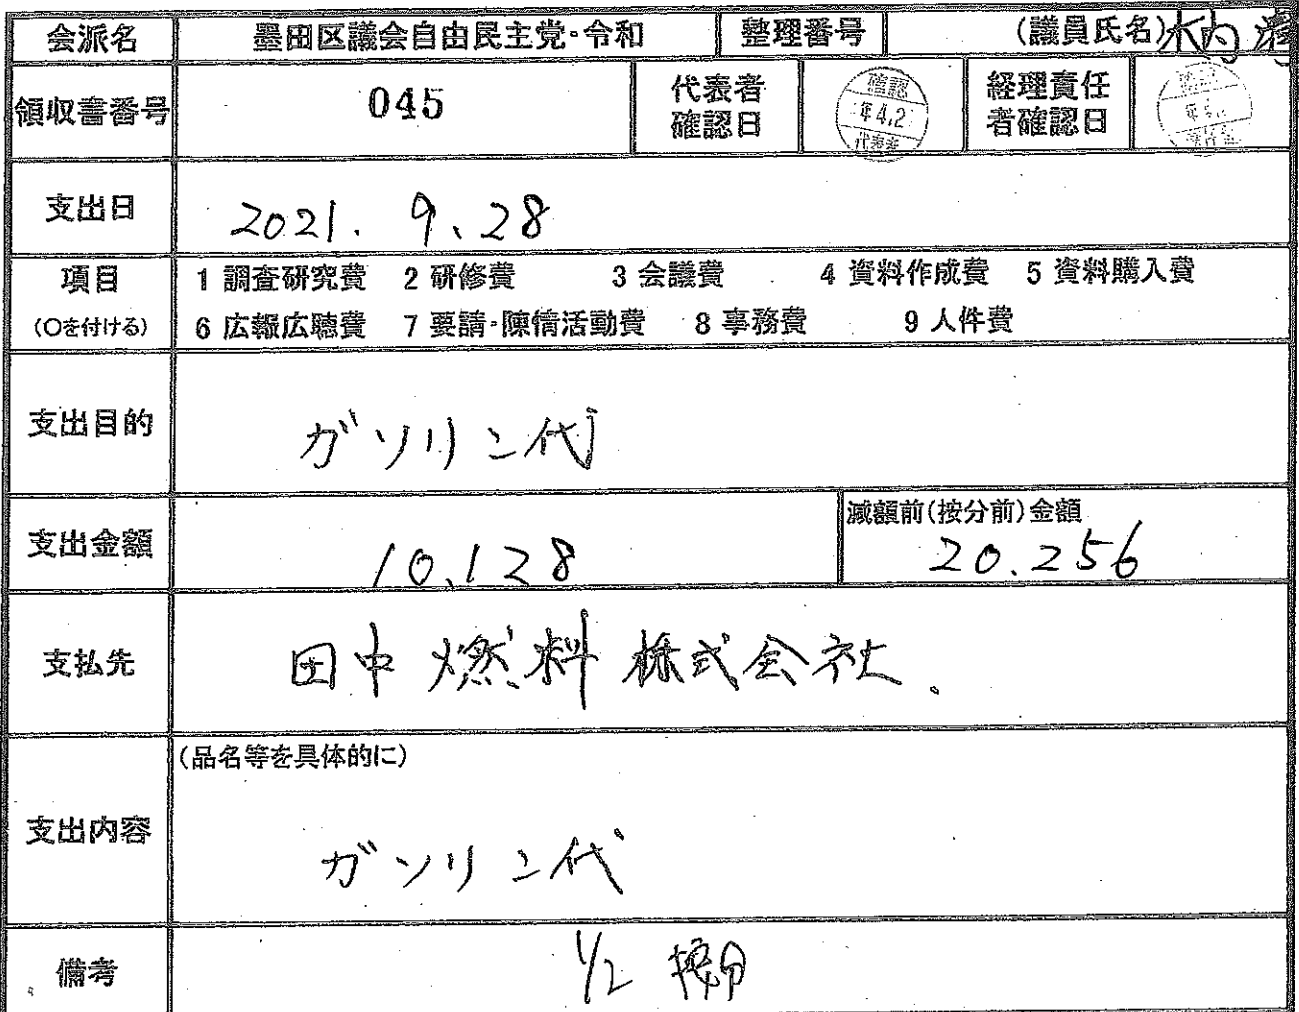 会派名 墨田区議会自由民主党・令和 整理番号 (議員氏名) 木内 清
領収書番号 045 代表者確認日 確認 年4.2 代表者 経理責任者確認日
支出日 2021. 9. 28
項目 1 調査研究費 2 研修費 3 会議費 4 資料作成費 5 資料購入費
(○を付ける) 6 広報広聴費 7 要請・陳情活動費 8 事務費 9 人件費
支出目的 ガソリン代
減額前(按分前)金額
支出金額 10.128 20.256
支払先 田中燃料株式会社.
(品名等を具体的に)
支出内容 ガソリン代
備考 1/2 按分